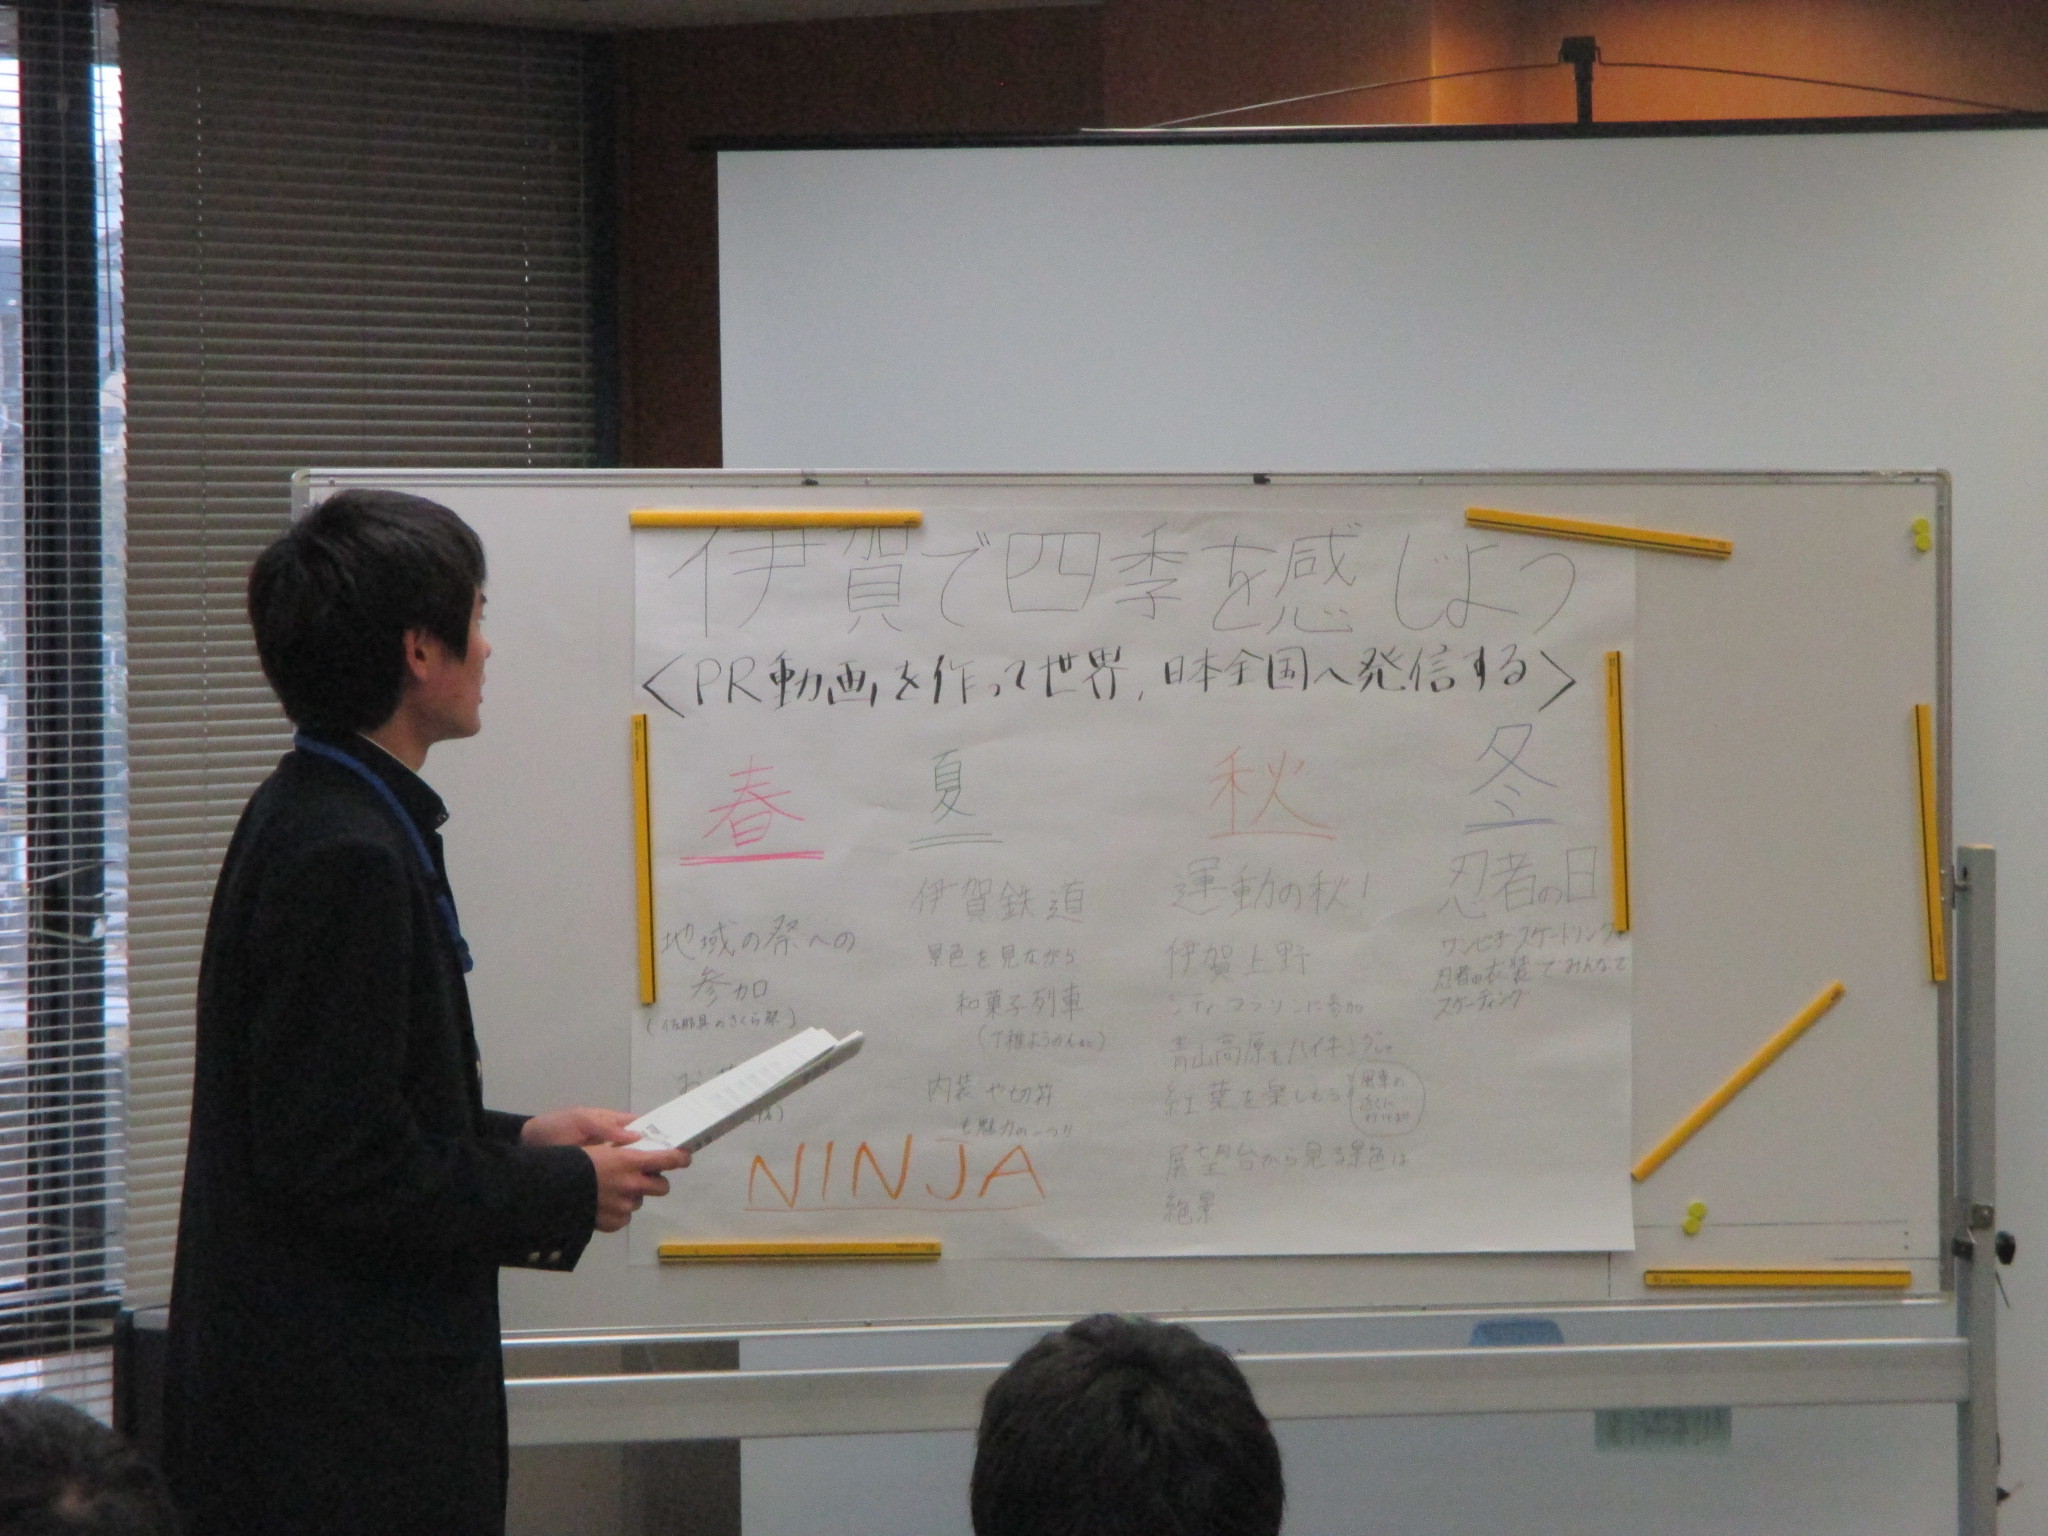 伊賀で四季を感じよう
<PR動画を作って世界、日本全国へ発信する>
春
地域の祭への
参加
(佐那具のさくら祭)
夏
伊賀鉄道
景色を見ながら
和菓子列車
(丁稚ようかんetc)
内装や切符
も魅力の一つ!!
秋
運動の秋!
伊賀上野
シティマラソンに参加
青山高原をハイキングして
紅葉を楽しもう
風車の
近くに
行ける!!
展望台から見る景色は
絶景
冬
忍者の日
ワンピースケートリンクで
忍者の衣装でみんなで
スケーティング
NINJA